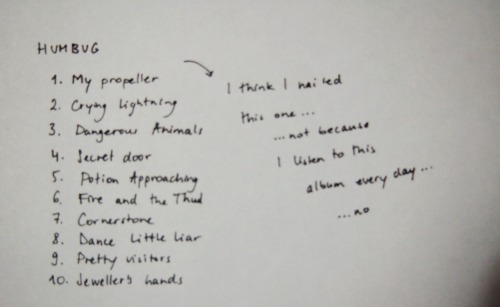 HUMBUG
1. My propeller
2. Crying lightning
3. Dangerous Animals
4. Secret door
5. Potion Approaching
6. Fire and the Thud
7. Cornerstone
8. Dance Little liar
9. Pretty visitors
10. Jeweller's hands
I think I nailed
this one...
...not because
I listen to this
album every day...
...no